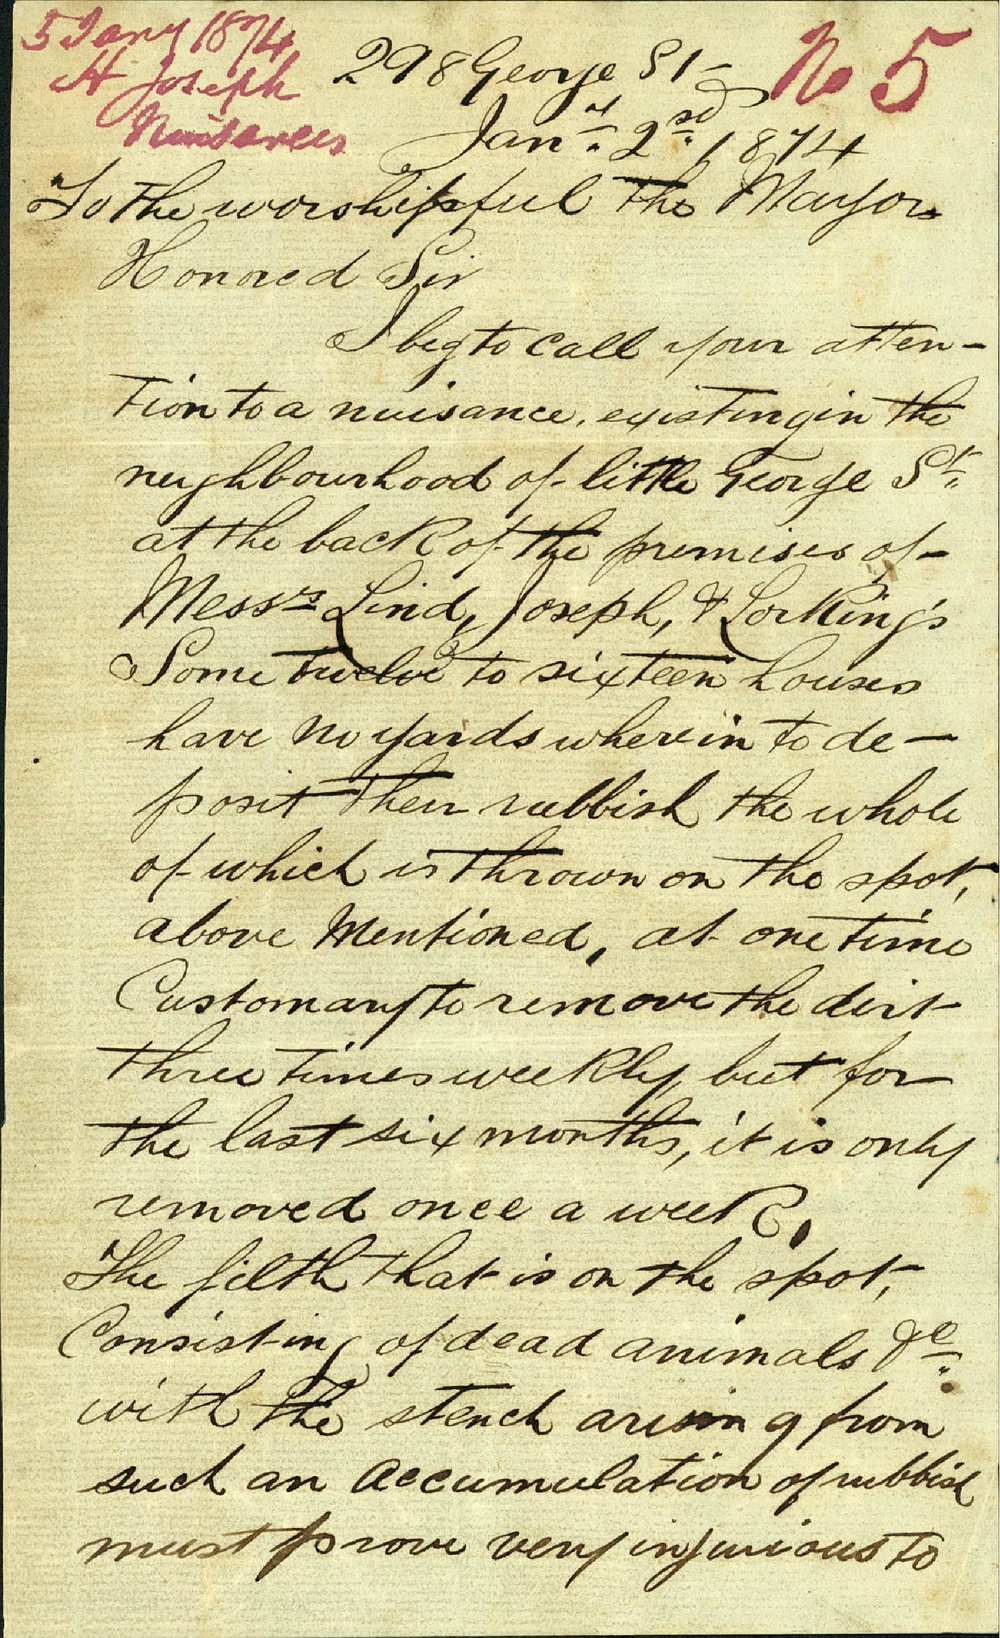 5 Jany 1874
H Joseph
Nuisances
No 5
298 George St
Jany. 2nd. 1874
To the worshipful the Mayor
Honored Sir
I beg to call your atten-
tion to a nuisance, existing in the
neighbourhood of little George St.
at the back of the premises of
Messrs Lind, Joseph, & Lorking's
Some twelve to sixteen houses
have no yards wherein to de-
posit their rubbish the whole
of which is thrown on the spot,
above Mentioned, at one time
Customary to remove the dirt
three times weekly, but for
the last six months, it is only
removed once a week.
The filth that is on the spot,
Consisting of dead animals &c.
with the stench arising from
such an accumulation of rubbish
must prove very injurious to